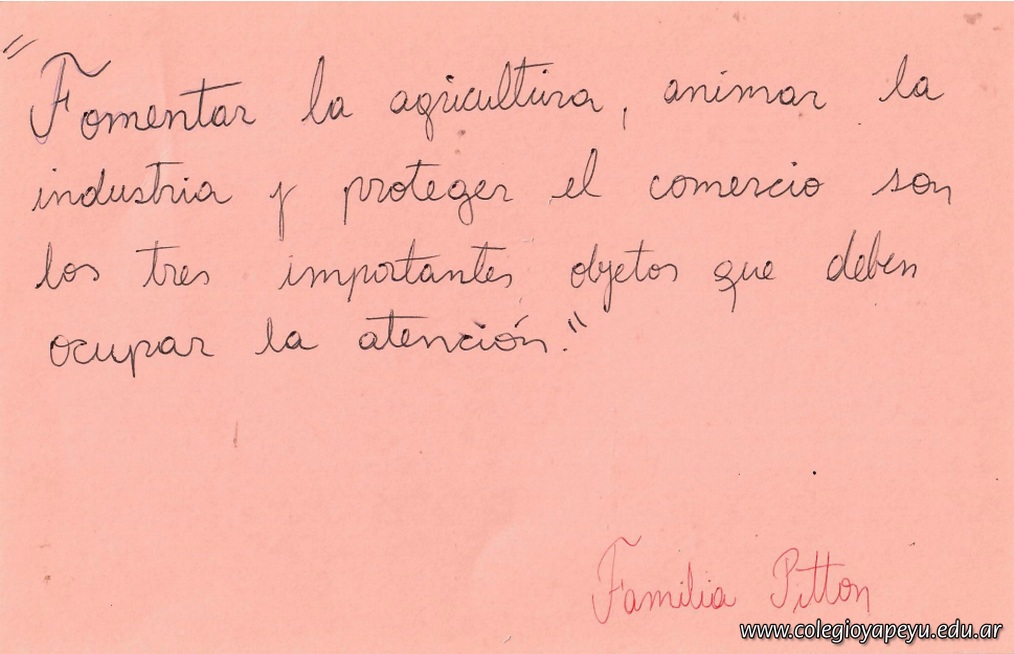 "Fomentar la agricultura, animar la
industria y proteger el comercio son
los tres importantes objetos que deben
ocupar la atención."
Familia Pitton
www.colegioyapeyu.edu.ar